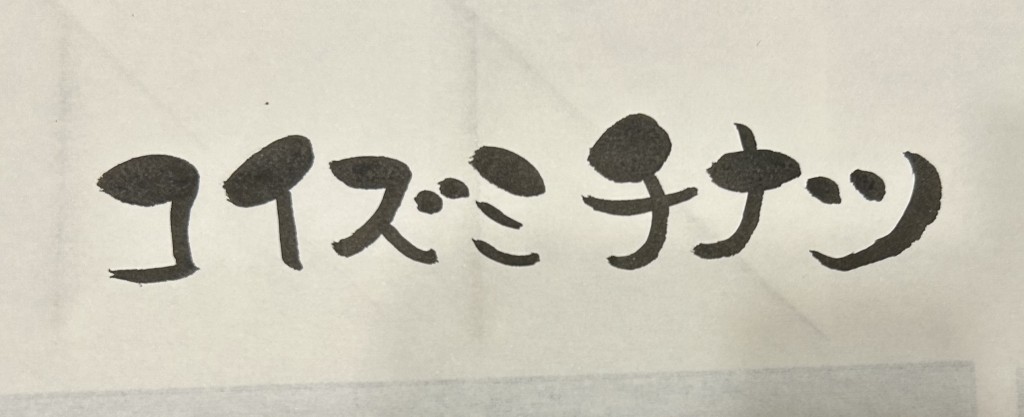 コイズミチナツ